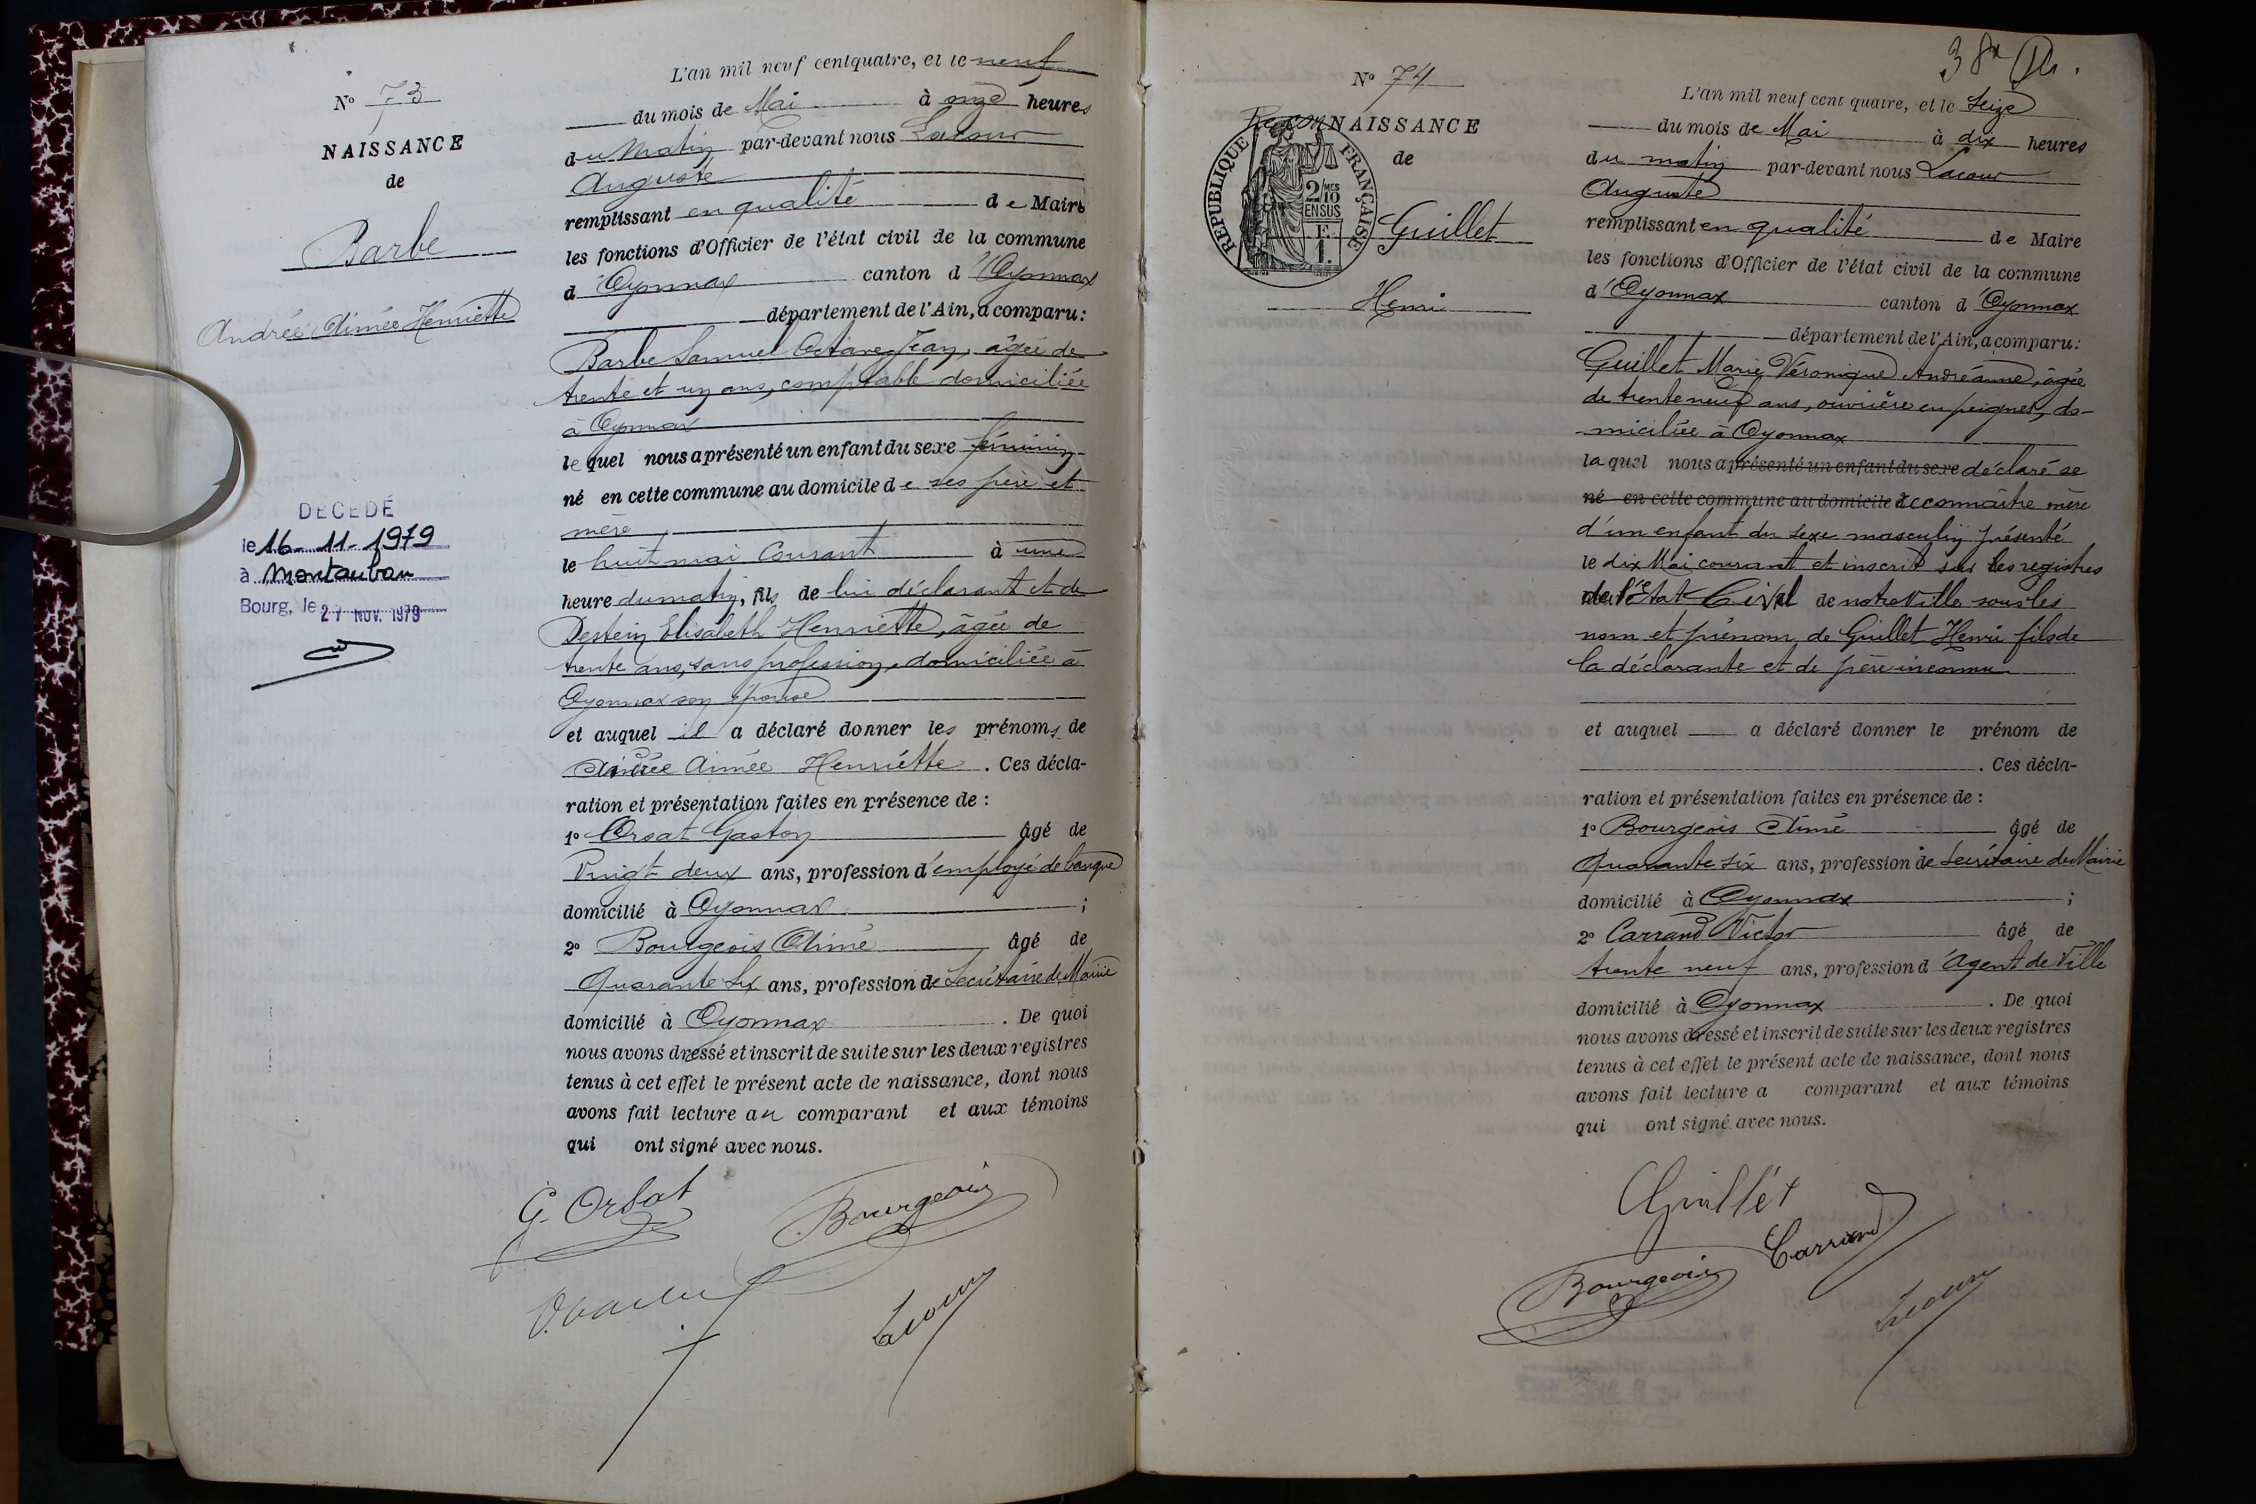 N° 73
NAISSANCE
de
Barbe
Andrée Aimée Henriette
DÉCÉDÉ
le 16-11-1979
à Montauban
Bourg, le 27 NOV. 1979
L'an mil neuf cent quatre, et le neuf
du mois de Mai à onze heures
du Matin par-devant nous Lacour
Auguste
remplissant en qualité de Maire
les fonctions d'Officier de l'état civil de la commune
d'Oyonnax canton d'Oyonnax
département de l'Ain, a comparu:
Barbe Samuel Octave Jean, âgée de
trente et un ans, comptable domiciliée
à Oyonnax
lequel nous a présenté un enfant du sexe féminin
né en cette commune au domicile de ses père et
mère
le huit mai Courant à une
heure du matin, fils de lui déclarant et de
Destein Elisabeth Henriette, âgée de
trente ans, sans profession, domiciliée à
Oyonnax son épouse
et auquel il a déclaré donner les prénoms de
Andrée Aimée Henriette. Ces décla-
ration et présentation faites en présence de :
1° Orsat Gaston âgé de
Vingt deux ans, profession d'employé de banque
domicilié à Oyonnax ;
2° Bourgeois Aimé âgé de
Quarante Six ans, profession de Secrétaire de Mairie
domicilié à Oyonnax. De quoi
nous avons dressé et inscrit de suite sur les deux registres
tenus à cet effet le présent acte de naissance, dont nous
avons fait lecture au comparant et aux témoins
qui ont signé avec nous.
G. Orsat
Bourgeois
Lacour
38
N° 74
Recon NAISSANCE
de
RÉPUBLIQUE FRANÇAISE
2/10 MES
EN SUS
F.
1.
Guillet
Henri
L'an mil neuf cent quatre, et le Seize
du mois de Mai à dix heures
du matin par-devant nous Lacour
Auguste
remplissant en qualité de Maire
les fonctions d'Officier de l'état civil de la commune
d'Oyonnax canton d'Oyonnax
département de l'Ain, a comparu:
Guillet Marie Véronique Andréanne, âgée
de trente neuf ans, ouvrière en peignes, do-
miciliée à Oyonnax
laquel nous a présenté un enfant du sexe déclaré se
né en cette commune au domicile reconnaître mère
d'un enfant du sexe masculin présenté
le dix Mai courant et inscrit sur les registres
de l'Etat Civil de notre Ville sous les
nom et prénom de Guillet Henri fils de
la déclarante et de père inconnu
et auquel a déclaré donner le prénom de
. Ces décla-
ration et présentation faites en présence de :
1° Bourgeois Aimé âgé de
Quarante six ans, profession de Secrétaire de Mairie
domicilié à Oyonnax ;
2° Carrand Victor âgé de
trente neuf ans, profession d'Agent de Ville
domicilié à Oyonnax. De quoi
nous avons dressé et inscrit de suite sur les deux registres
tenus à cet effet le présent acte de naissance, dont nous
avons fait lecture a comparant et aux témoins
qui ont signé avec nous.
Guillet
Carrand
Bourgeois
Lacour